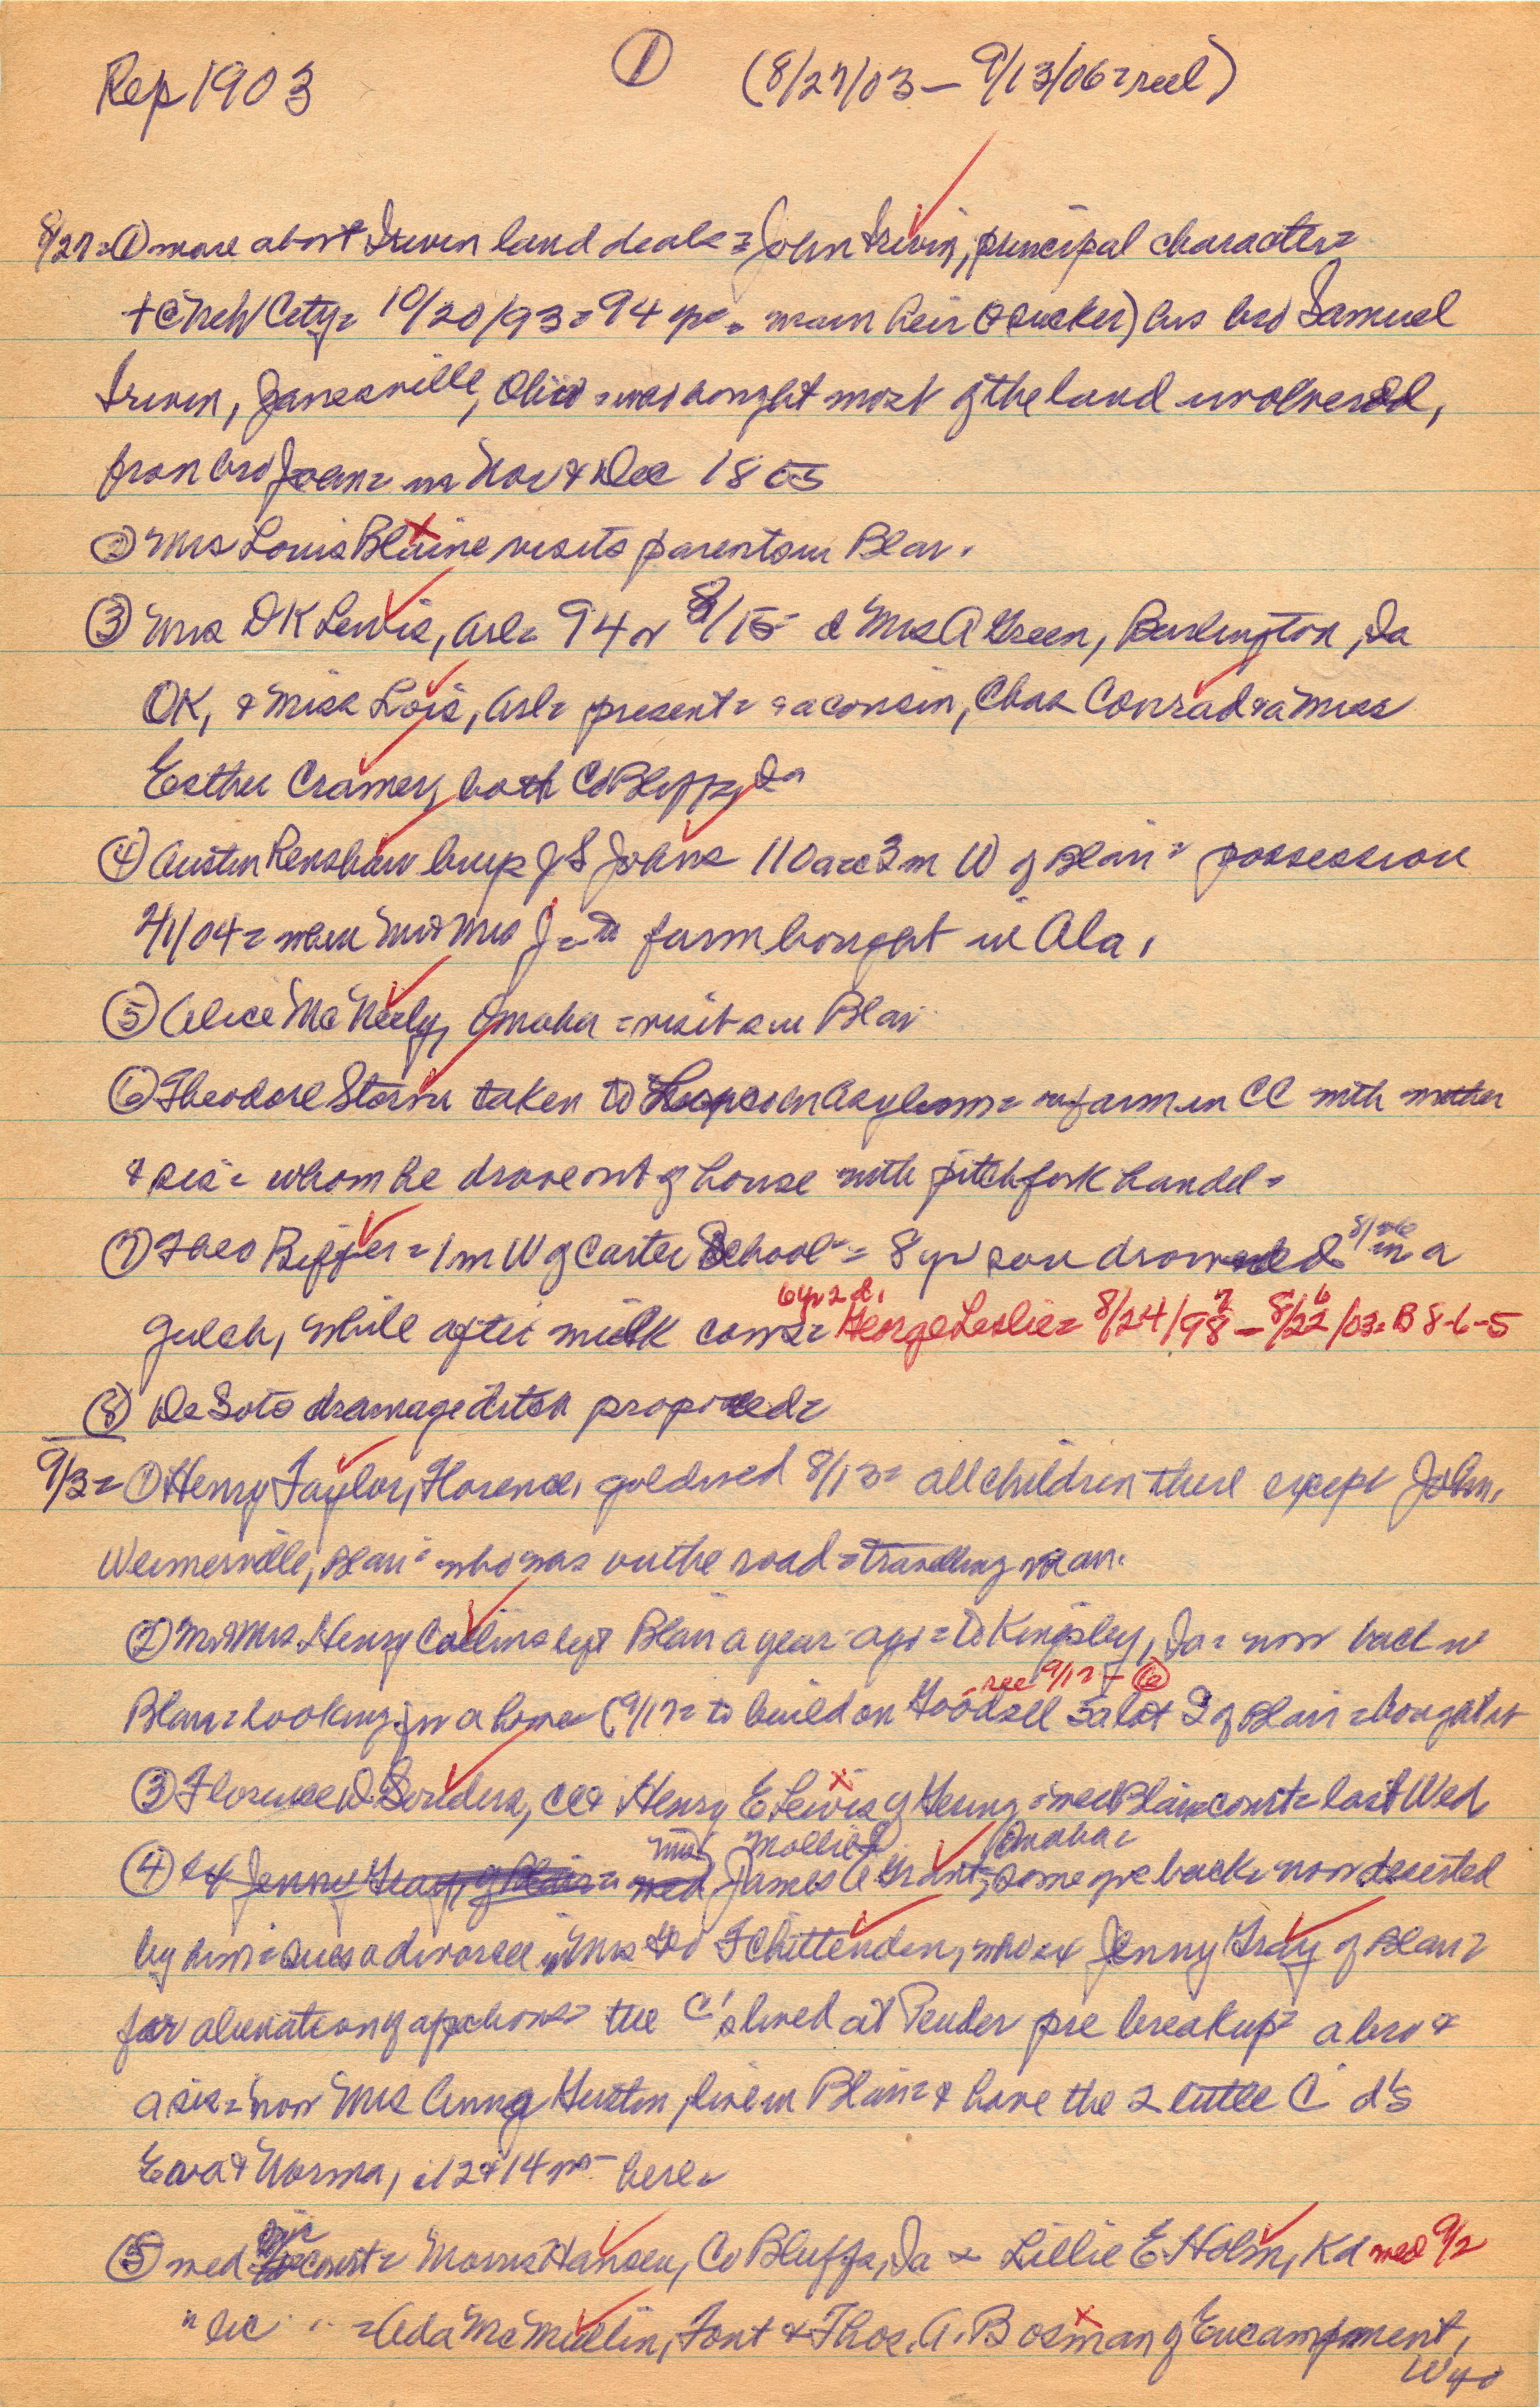 Rep 1903 ① (8/27/03 – 9/13/06 = reel)
8/27 = ① more about Irwin land deals = John Irwin, principal character =
+ @ Neb City = 10/20/93 = 94 yr = main heir ( sucker) his bro Samuel
Irwin, Janesville, Ohio = who bought most of the land involved,
from bro John = in Nov & Dec 1865
② Mrs Louis Blaine visits parents in Blair.
③ Mrs D K Lewis, Arl = 94 8/15 d Mrs A Green, Burlington, Ia
OK, & Miss Lois, Arl = present = & a cousin, Chas Conrad & a Miss
Esther Cramer, both Co Bluffs, Ia
④ Austin Renshaw buys J S Johns 110 ac 3 m W of Blair = possession
2/1/04 = when Mr & Mrs J = to farm bought in Ala.
⑤ Alice McNeely, Omaha = visits in Blair
⑥ Theodore Storm taken to Lincoln Asylum = on farm in CC with mother
& sis = whom he drove out of house with pitchfork handel =
⑦ Theo Biffer = 1 m W of Carter School = 8 yr son drowned in a
gulch, while after milk cows = 6 yr 2 d. George Leslie = 8/24/98 7 – 8/22 6 /03 = B 8-6-5
⑧ De Soto drainage ditch proposed =
9/3 = ① Henry Taylor, Florence, gold wed 8/13 = all children there except John,
Weimerville, Blair = who was on the road = travelling man.
② Mr & Mrs. Henry Collins left Blair a year ago = to Kingsley, Ia = now back in
Blair = looking for a home (9/17 = to build on Goodsell 5 a lot S of Blair = bought it
see 9/17 – ⑥
③ Florence D. Souders, CC & Henry E Lewis of = wed Blair court = last Wed
④ ex Jenny Gray, of Blair = wed Mrs Mollie James A Grant, Omaha = some yrs back = now deserted
by him = sues a divorcee = Mrs Geo F Chittenden, who ex Jenny Gray of Blair =
for alienation of affections = the C's lived at Pender pre breakup = a bro &
a sis = now Mrs Anna Huston, live in Blair = & have the 2 little C d's
Eva & Norma, 12 & 14 yrs = here =
⑤ wed court = Morris Hansen, Co Bluffs, Ia & Lillie E Holm, Kd wed 9/2
" lic " = Ada McMullin, Font & Thos. A. Bosman of Encampment,
Wyo